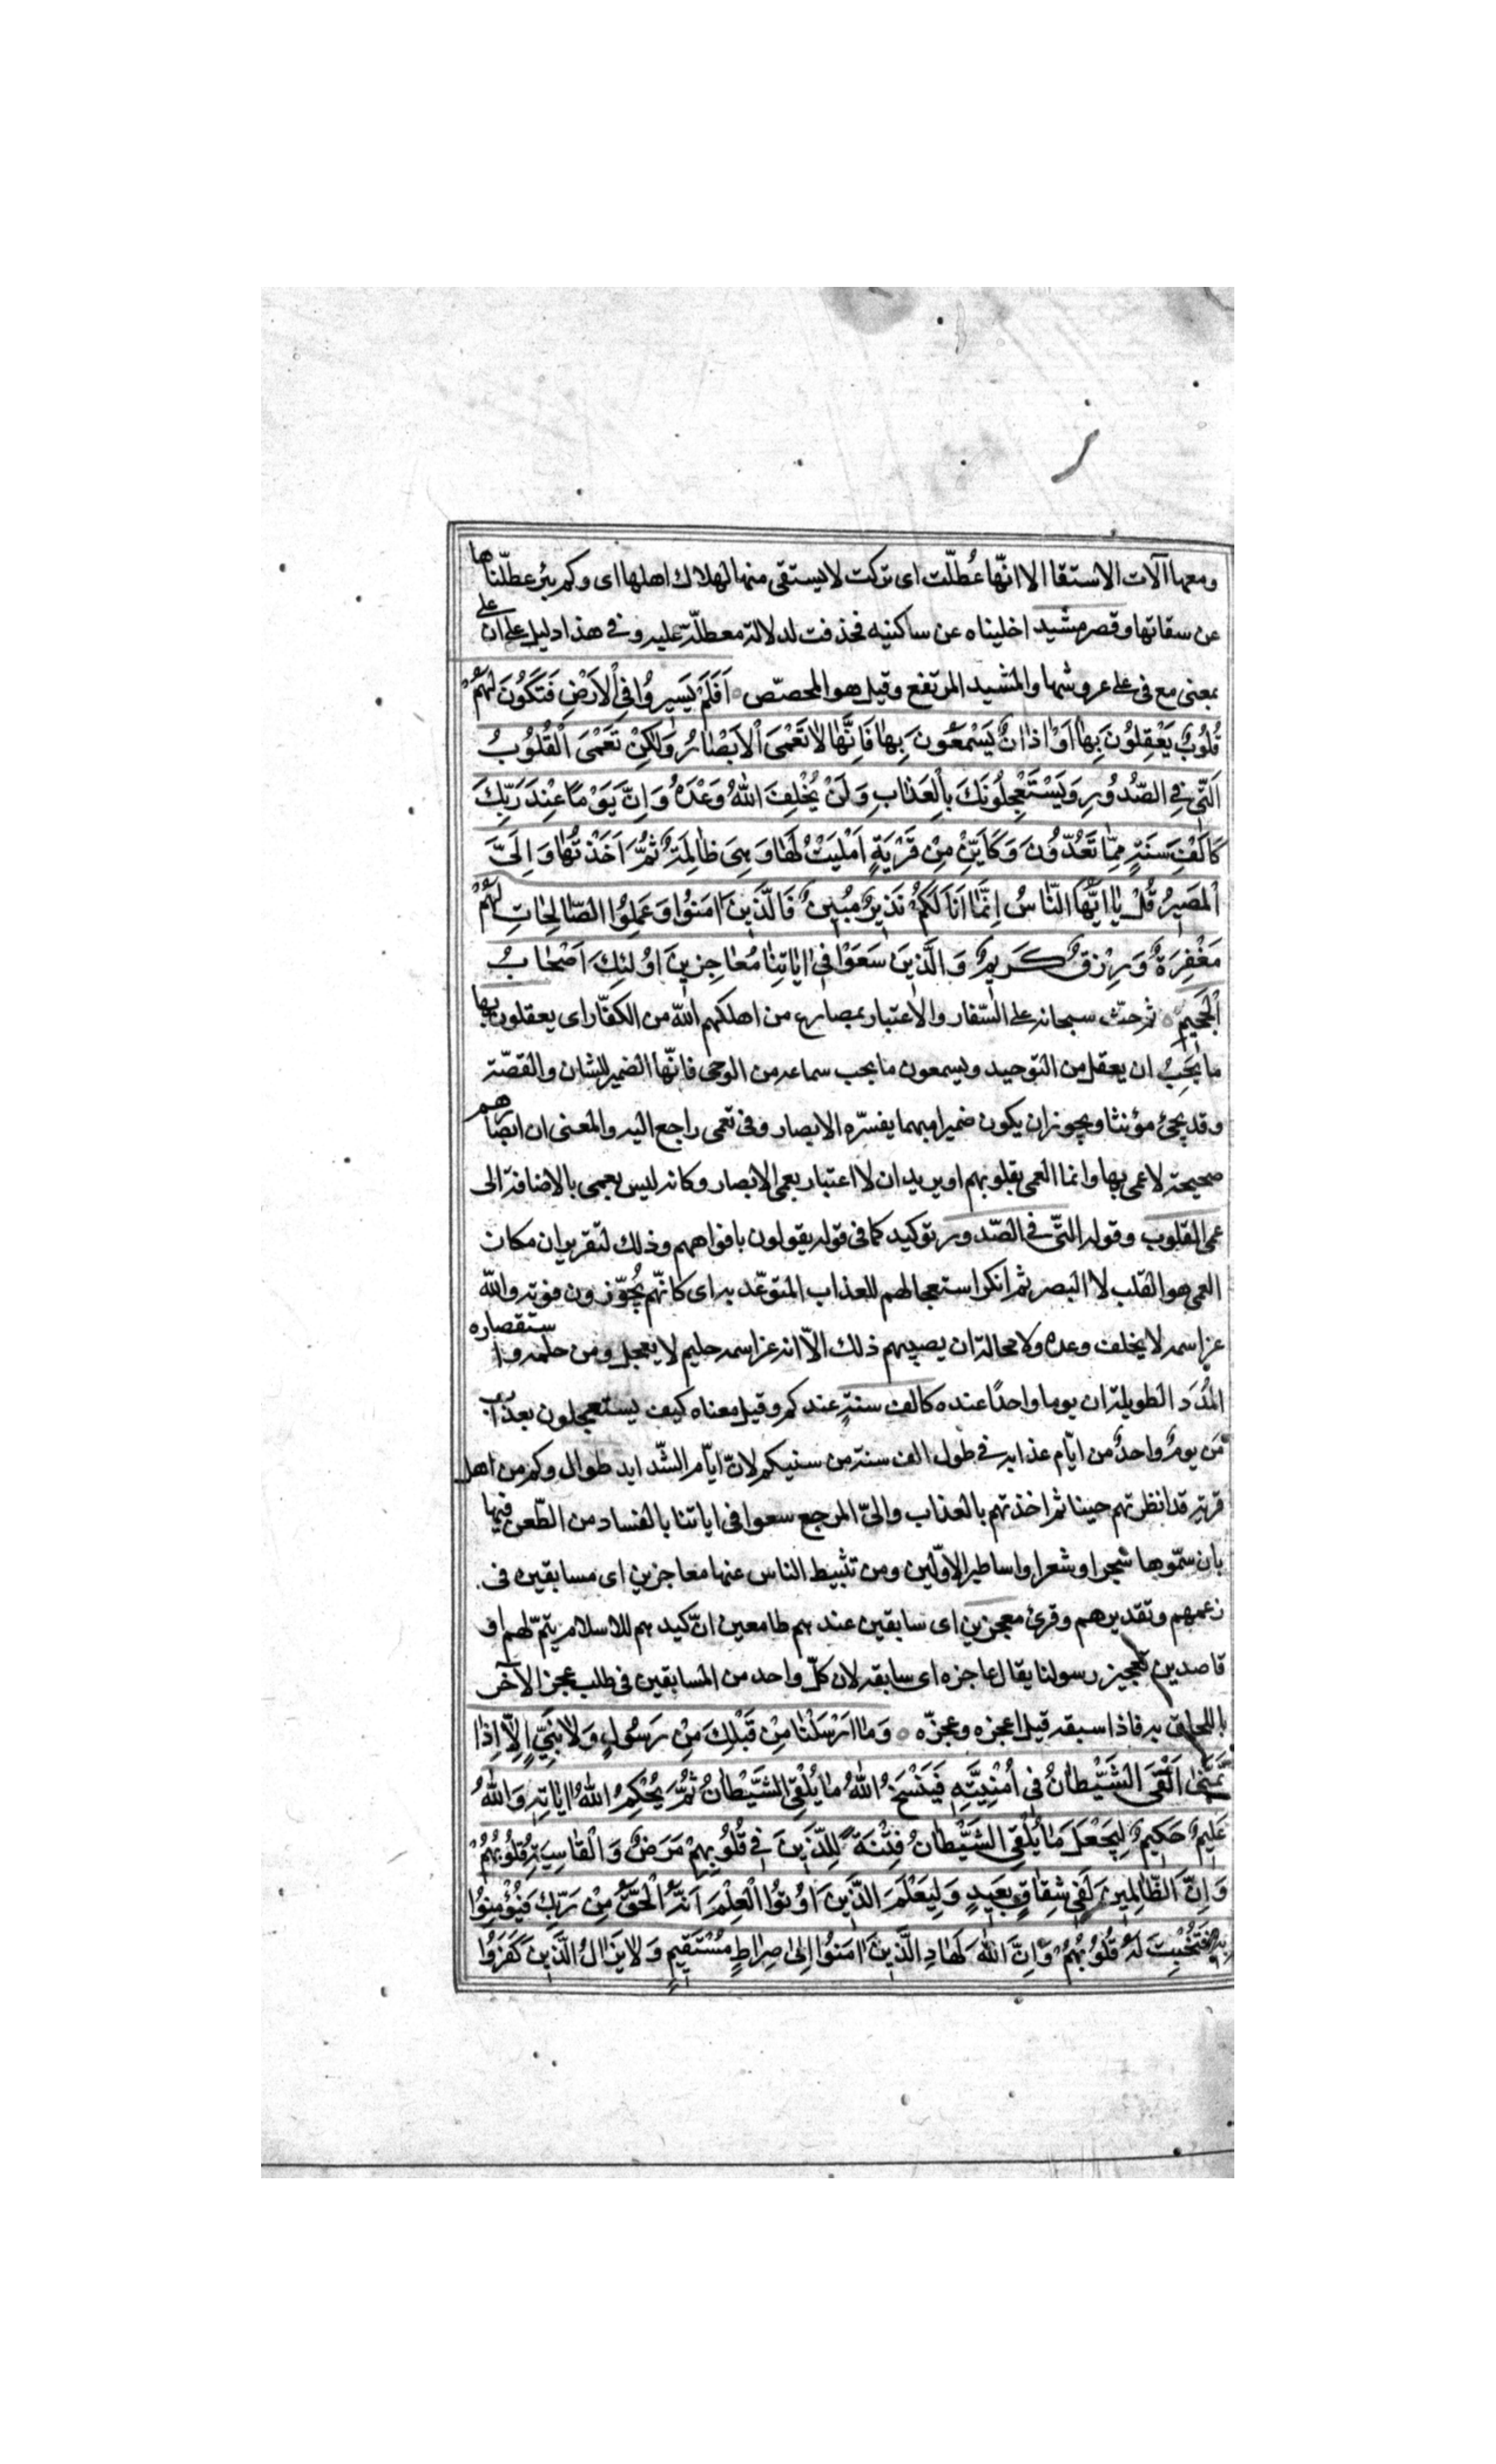 ومعها آلات الاستقا الا انّها عُطلّت اى تركت لا يستقى منها لهلاك اهلها اى وكم بئر عطلّناها
عن سقاتها وقصر مشيد اخليناه عن ساكنيه فحذفت لدلالة معطلّة عليه وفى هذا دليل على ان على
بمعنى مع فى على عروشها والمشيد المرتفع وقيل هو المجصّص ٥ اَفَلَمْ يَسيرُوا فِي الْاَرْضِ فَتَكُونَ لَهُمْ
قُلُوبٌ يَعْقِلُونَ بِها اَوْ اذانٌ يَسْمَعُونَ بِها فَاِنَّها لا تَعْمَى الْاَبْصارُ وَلكِنْ تَعْمَى الْقُلُوبُ
الَّتي فِي الصُّدُورِ وَيَسْتَعْجِلُونَكَ بِالْعَذابِ وَلَنْ يُخْلِفَ اللهُ وَعْدَهُ وَاِنَّ يَوْمًا عِنْدَ رَبِّكَ
كَاَلْفِ سَنَةٍ مِمّا تَعُدُّونَ وَكَاَيِّنْ مِنْ قَرْيَةٍ اَمْلَيْتُ لَها وَهِيَ ظالِمَةٌ ثُمَّ اَخَذْتُها وَاِلَيَّ
الْمَصيرُ قُلْ يا اَيُّهَا النّاسُ اِنَّما اَنَا لَكُمْ نَذيرٌ مُبينٌ فَالَّذينَ امَنُوا وَعَمِلُوا الصّالِحاتِ لَهُمْ
مَغْفِرَةٌ وَرِزْقٌ كَريمٌ وَالَّذينَ سَعَوْا في اياتِنا مُعاجِزينَ اُولئِكَ اَصْحابُ
الْجَحيمِ ٥ ثم حثّ سبحانه على السّفار والاعتبار بمصارع من اهلكهم اللّه من الكفّار اى يعقلون بها
ما يَجِبُ ان يعقل من التوحيد ويسمعون ما يجب سماعه من الوحى فانّها الضمير للشان والقصّة
وقد يجئ مؤنثا ويجوز ان يكون ضميرا مبهما يفسّره الابصار وفى تعمى راجع اليه والمعنى ان ابصارهم
صحيحة لا عمى بها وانما العمى بقلوبهم او يريد ان لا اعتبار بعمى الابصار وكانه ليس بعمى بالاضافة الى
عمى القلوب وقوله التّى فى الصّدور توكيد كما فى قوله يقولون بافواههم وذلك لتقرير ان مكان
العمى هو القلب لا البصر ثم انكر استعجالهم للعذاب المتوعّد به اى كانّهم يُجوّزون فوته واللّه
عزّ اسمه لا يخلف وعده ولا محالة ان يصيبهم ذلك الاّ انه عزّ اسمه حليم لا يعجل ومن حلمه واستقصاره
المُدَد الطويلة ان يوما واحدًا عنده كالف سنةٍ عندكم وقيل معناه كيف يستعجلون بعذاب
مَن يومٌ واحدٌ من ايّام عذابه فى طول الف سنة من سنيكم لانّ ايّام الشّدايد طوال وكم من اهل
قرية قد انظرتهم حينا ثم اخذتهم بالعذاب والىّ المرجع سعوا فى اياتنا بالفساد من الطّعن فيها
بان سمّوها سحرا وشعرا واساطير الاوّلين ومن تثبيط الناس عنها معاجزين اى مسابقين فى
زعمهم وتقديرهم وقرئ معجزين اى سابقين عندهم طامعين انّ كيدهم للاسلام يتمّ لهم او
قاصدين تعجيز رسولنا يقال عاجزه اى سابقه لان كلّ واحد من المسابقين فى طلب عجز الآخر
باللحاق به فاذا سبقه قيل اعجزه وعجزّه ٥ وَما اَرْسَلْنا مِنْ قَبْلِكَ مِنْ رَسُولٍ وَلا نَبِيٍّ اِلاّ اِذا
تَمَنّى اَلْقَى الشَّيْطانُ في اُمْنِيَّتِهِ فَيَنْسَخُ اللهُ ما يُلْقِي الشَّيْطانُ ثُمَّ يُحْكِمُ اللهُ اياتِهِ وَاللهُ
عَليمٌ حَكيمٌ لِيَجْعَلَ ما يُلْقِي الشَّيْطانُ فِتْنَةً لِلَّذينَ في قُلُوبِهِمْ مَرَضٌ وَالْقاسِيَةِ قُلُوبُهُمْ
وَاِنَّ الظّالِمينَ لَفي شِقاقٍ بَعيدٍ وَلِيَعْلَمَ الَّذينَ اُوتُوا الْعِلْمَ اَنَّهُ الْحَقُّ مِنْ رَبِّكَ فَيُؤْمِنُوا
بِهِ فَتُخْبِتَ لَهُ قُلُوبُهُمْ وَاِنَّ اللهَ لَهادِ الَّذينَ امَنُوا اِلى صِراطٍ مُسْتَقيمٍ وَلا يَزالُ الَّذينَ كَفَرُوا